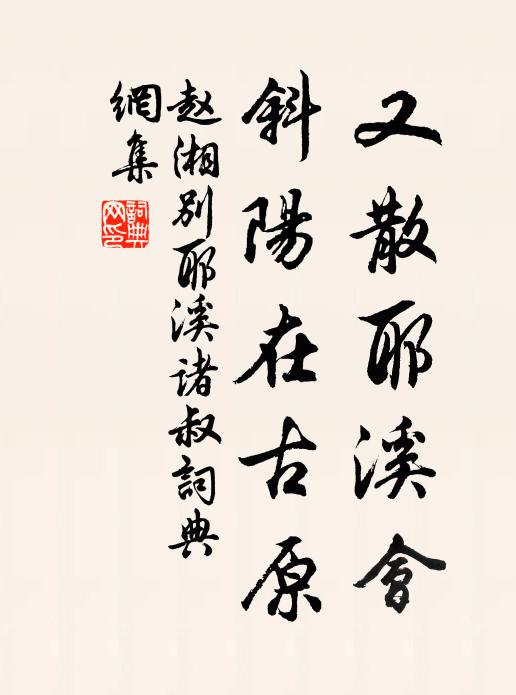 又散耶溪會
斜陽在古原
赵湘别耶溪诸叔詞典
網集
詞典
网印